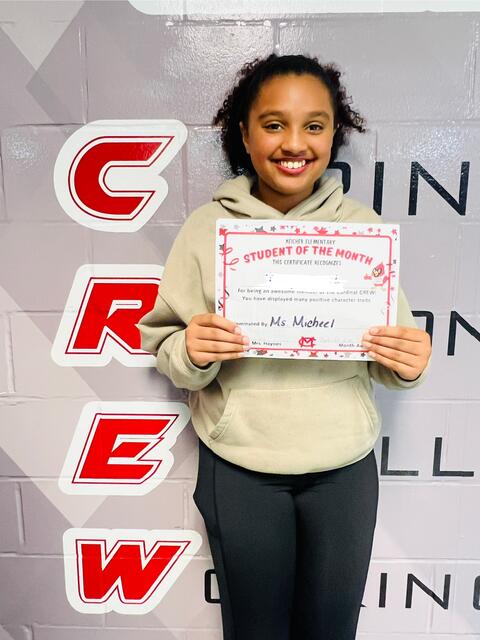 C
R
E
W
KEICHER ELEMENTARY
STUDENT OF THE MONTH
THIS CERTIFICATE RECOGNIZES
For being an awesome member of the Cardinal CREW.
You have displayed many positive character traits
Nominated By Ms. Micheel
Mrs. Haynes
MC
Month